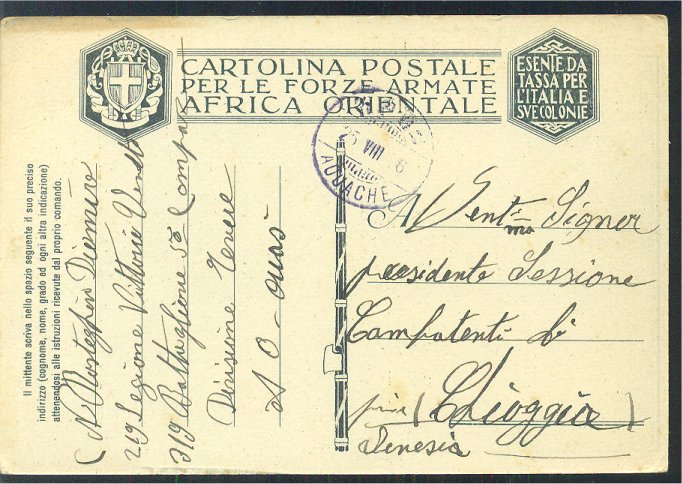 CARTOLINA POSTALE
PER LE FORZE ARMATE
AFRICA ORIENTALE
ESENTE DA
TASSA PER
L'ITALIA E
SVE COLONIE
25 VIII 6
AUUACHE
Il mittente scriva nello spazio seguente il suo preciso
indirizzo (cognome, nome, grado ed ogni altra indicazione)
attenendosi alle istruzioni ricevute dal proprio comando.
219 Legione Vittorio
319 Battaglione 5ª Compa
Divisione Tevere
A O
Al Gent.mo Signor
presidente Sessione
Combatenti di
(Chioggia)
Venesia